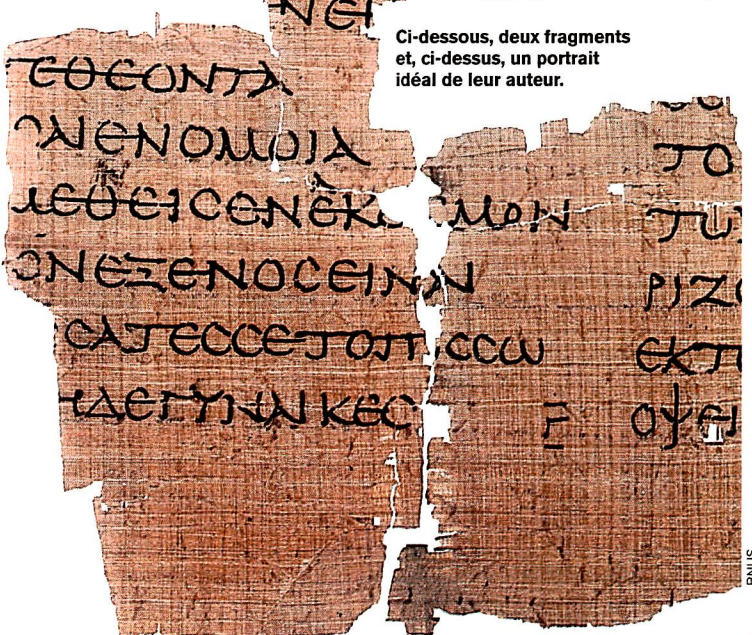 ΝΕΙ
Ci-dessous, deux fragments
et, ci-dessus, un portrait
idéal de leur auteur.
ΓΕΘΕΟΝΤΑ
ΑΙΕΝΟΜΟΙΑ
ΜΕΘΕΙϹΕΝΕΚ ϹΜΟΝ
ΟΝΕΞΕΝΟϹΕΙΝΑΙ
ϹΑΤΕϹϹΕΤΟΠΙϹϹΩ
ΗΔΕΓΥΝΑΙΚΕϹ Γ
ΤΟ
ΤΩ
ΡΙΖ
ΕΚΤ
ΟΨΕΙ
BNUS